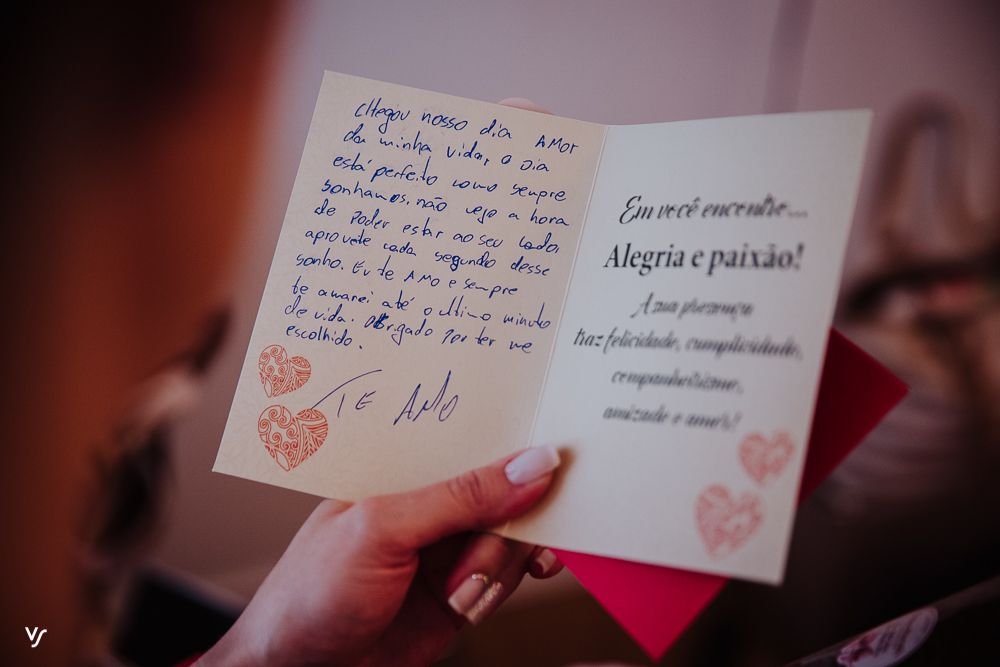 Chegou nosso dia AMOr
da minha vida, o dia
está perfeito como sempre
sonhamos, não vejo a hora
de poder estar ao seu lado,
aprovete cada segundo desse
sonho. Eu te AMO e sempre
te amarei até o ultimo minuto
de vida. Obrigado por ter me
escolhido.
TE AMO
Em você encontro...
Alegria e paixão!
A sua presença
traz felicidade, cumplicidade,
companheirismo,
amizade e amor!
VS